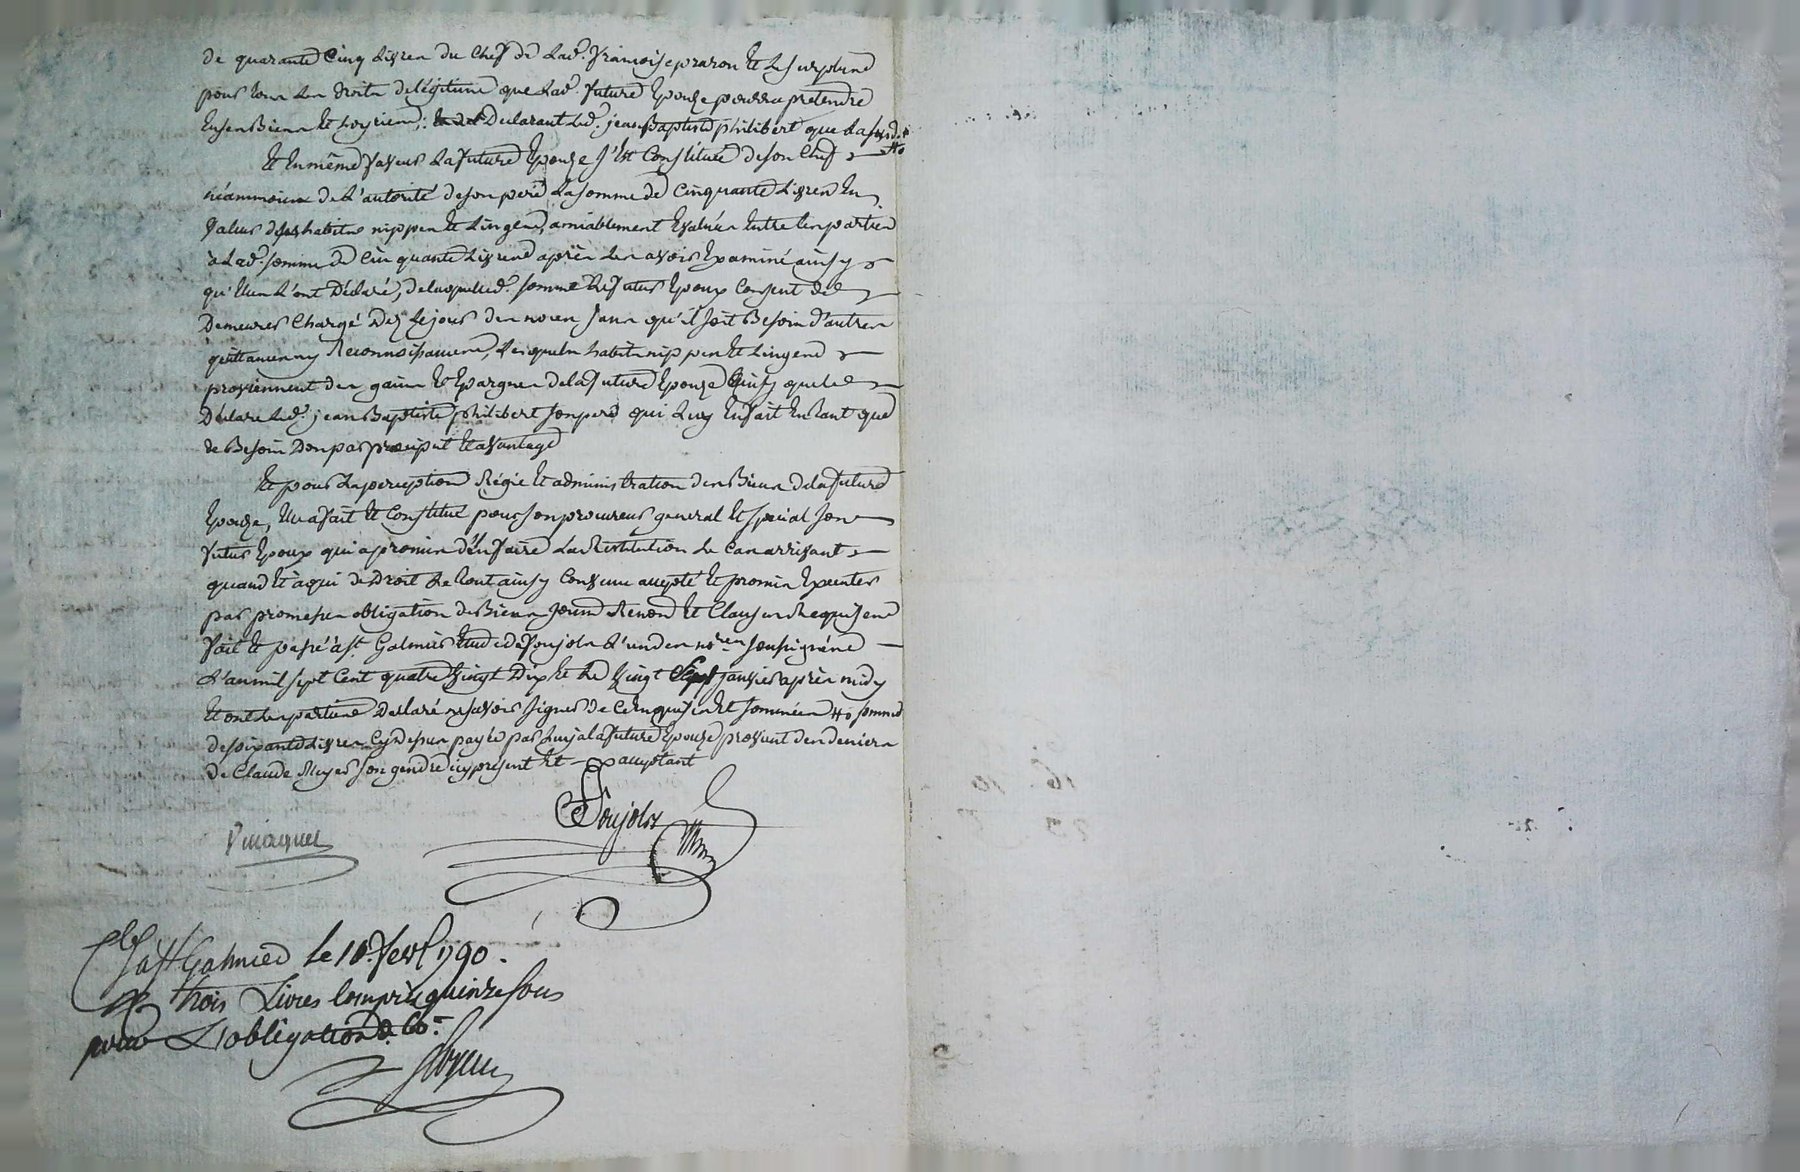 de quarante Cinq Livres du Chef de lad. françoise prazon et le surplus
pour tous les droits de légitime que lad. future Epouze pourra prétendre
En ses Biens et hoyries; Declarant led. jean Baptiste philibert que la susd.
Et En même faveur la future Epouze s'Est Constituée de son Chef
néanmoins de l'autorité de son pere la somme de Cinquante Livres En
valeur de ses habits nippes et Linges, amiablement Evalués Entre les parties
a lad. somme de Cinquante Livres après les avoir Examiné ainsy
qu'elles l'ont Déclaré, de laquelle d. somme le futur Epoux Consent de
Demeurer Chargé Dez le jour des noces sans qu'il soit Besoin d'autres
quittances ny Reconnoissances, lesquels habits nippes et Linges
proviennent des gains et Epargnes de la future Epouze ainsy que le
Déclare led. jean Baptiste philibert son pere qui luy En fait En tant que
de Besoin Don par préciput et avantage
Et pour la perception Régie et administration des Biens de la future
Epouze, Elle a fait et Constitué pour son procureur general et special son
futur Epoux qui a promis d'En faire la Restitution le Cas arrivant
quand et à qui de Droit le tout ainsy Convenu accepté et promis Executer
par promesses obligation de Biens soumis Renon et Clauses Requises
fait et passé à st Galmier Etude de foujols l'un des nores soussignés
L'an mil sept Cent quatre Vingt Dix et le Vingt Sept janvier après midy
Et ont les parties Declaré ne savoir signer de Ce Enquises et sommées #o somme
de soixante Livres Cy dessus payée par luy a la future Epouze provient des deniers
de Claude Meyer son gendre icy présent et acceptant
foujols
Clé à st Galmier le 10. fevr 1790.
trois Livres Compris quinze sous
pour L'obligation &. Co.